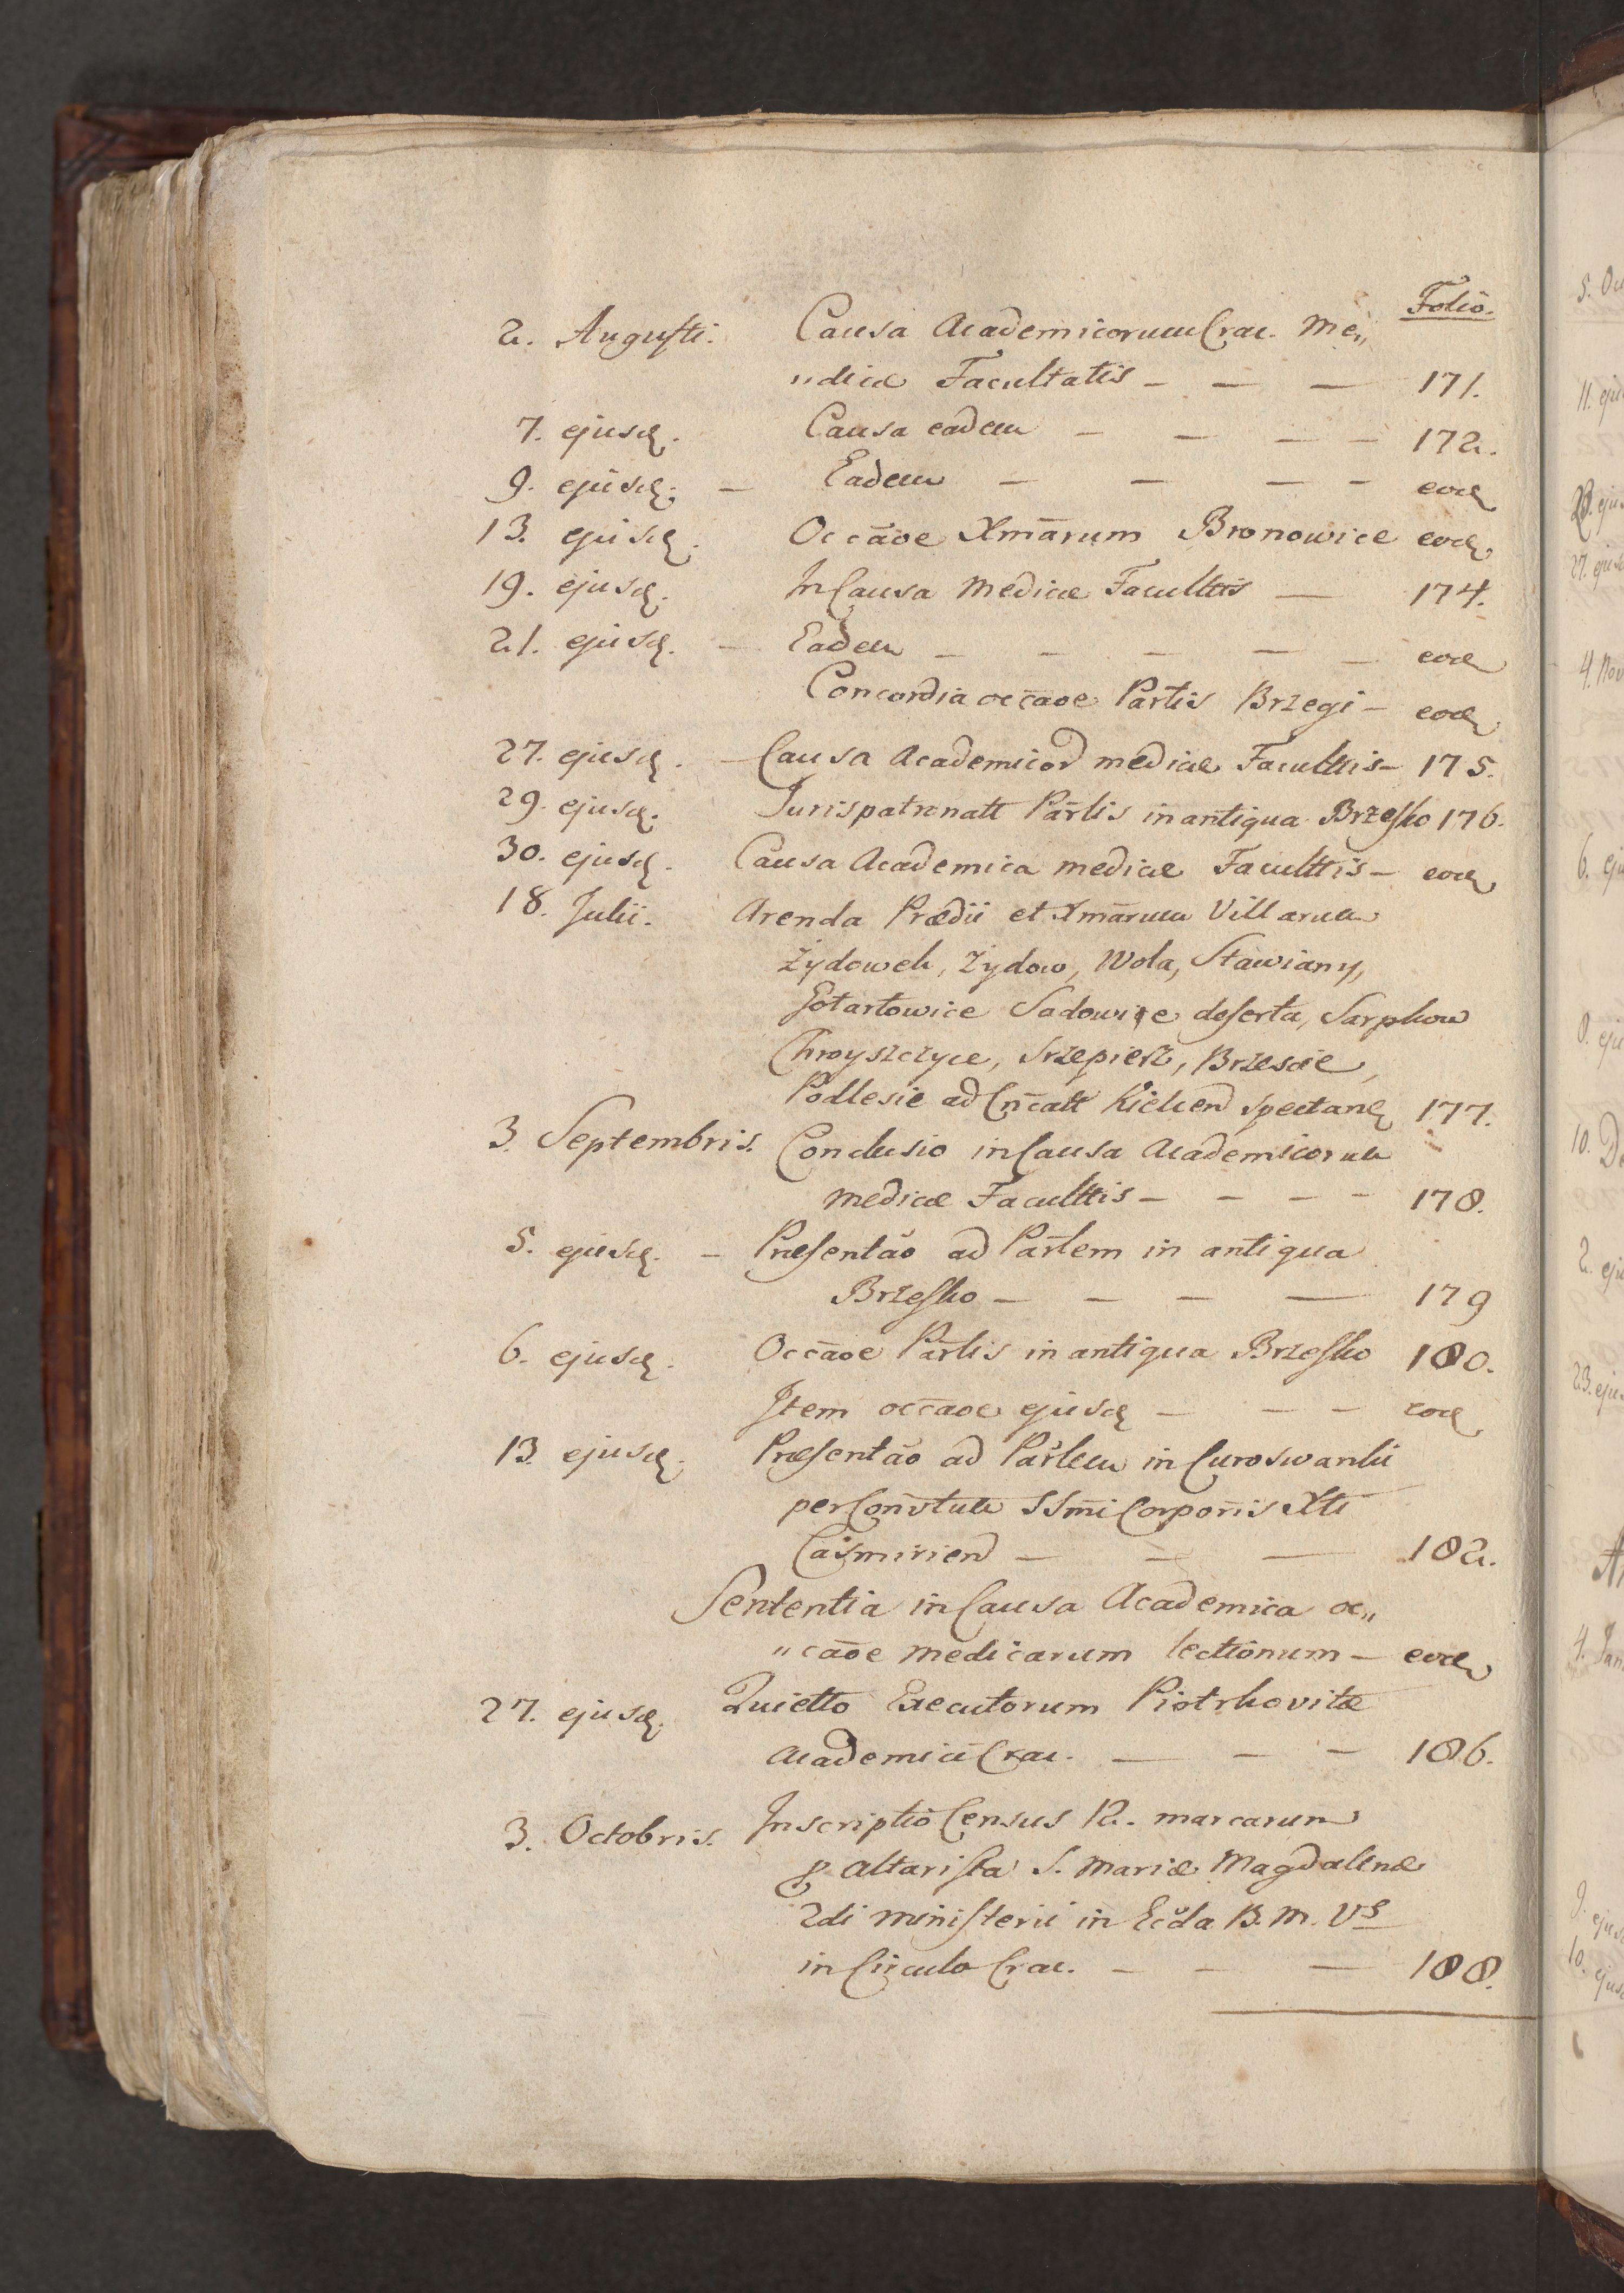 Folio.
2. Augusti. Causa Academicorum Crac. Me„
„dicæ Facultatis – – – 171.
7. ejusd. Causa eadem – – – – 172.
9. ejusd. – Eadem – – – – eod
13. ejusd. Occãoe Xmãrum Bronowice eod
19. ejusd. In Causa Medicæ Faculttis – 174.
21. ejusd. – Eadem – – – – – eod
Concordia occãoe Partis Brzegi – eod
27. ejusd. – Causa Academicor medicæ Faculttis – 175.
29. ejusd. Jurispatronatt Pãrlis in antiqua Brzesko 176.
30. ejusd. Causa Academica medicæ Facultttis – eod
18. Julii. Arenda Prædii et Xmãrum Villarum
Żydowek, Zydow, Wola, Stawiany,
Gotartowice Sadowice deserta, Sarpkow
Chroyszczyce, Srzepierz, Brzescie,
Podlesie ad Cñcatt Kielcen spectan 177.
3. Septembris. Conclusio in Causa Academicorum
Medicæ Facultttis – – – – 178.
5. ejusd. – Præsentão ad Pãrlem in antiqua
Brzesko – – – – 179
6. ejusd. Occãoe Pãrlis in antiqua Brzesko 180.
Item occãoe ejusd – – – eod
13. ejusd. Præsentão ad Pãrlem in Curoswanki
per Coñvtum SSmi Corporis Xti
Casmirien – – – 182.
Sententia in Causa Academica oc„
„cãoe medicarum lectionum – eod
27. ejusd. Quietto Executorum Piotrkovitæ
Academici Crac. – – – 186.
3. Octobris. Inscriptio Census 12. marcarum
p altarista S. Mariæ Magdalenæ
2di ministerii in Eccla B. M. Vs
in Circulo Crac. – – – 188.